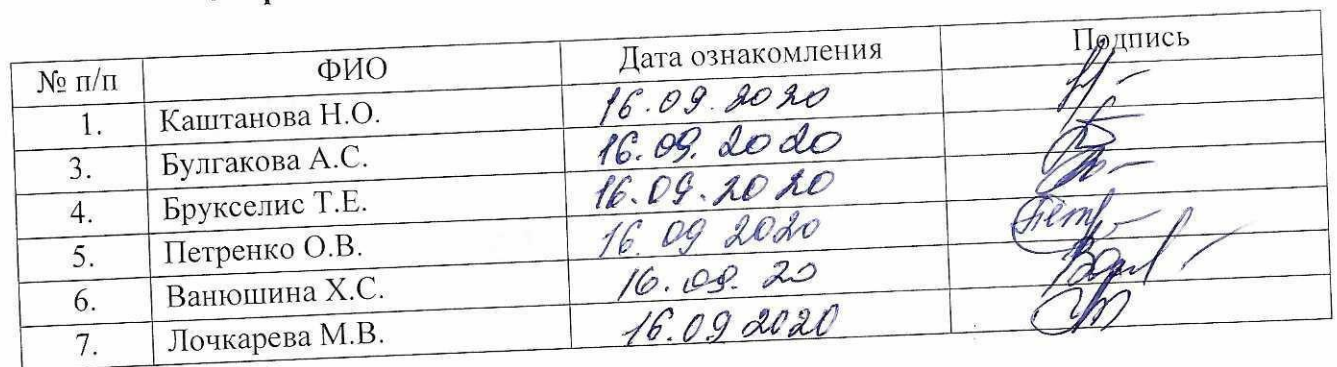 № п/п ФИО Дата ознакомления Подпись
1. Каштанова Н.О. 16.09.2020
3. Булгакова А.С. 16.09.2020
4. Брукселис Т.Е. 16.09.2020
5. Петренко О.В. 16 09 2020
6. Ванюшина Х.С. 16.09.20
7. Лочкарева М.В. 16.09 2020